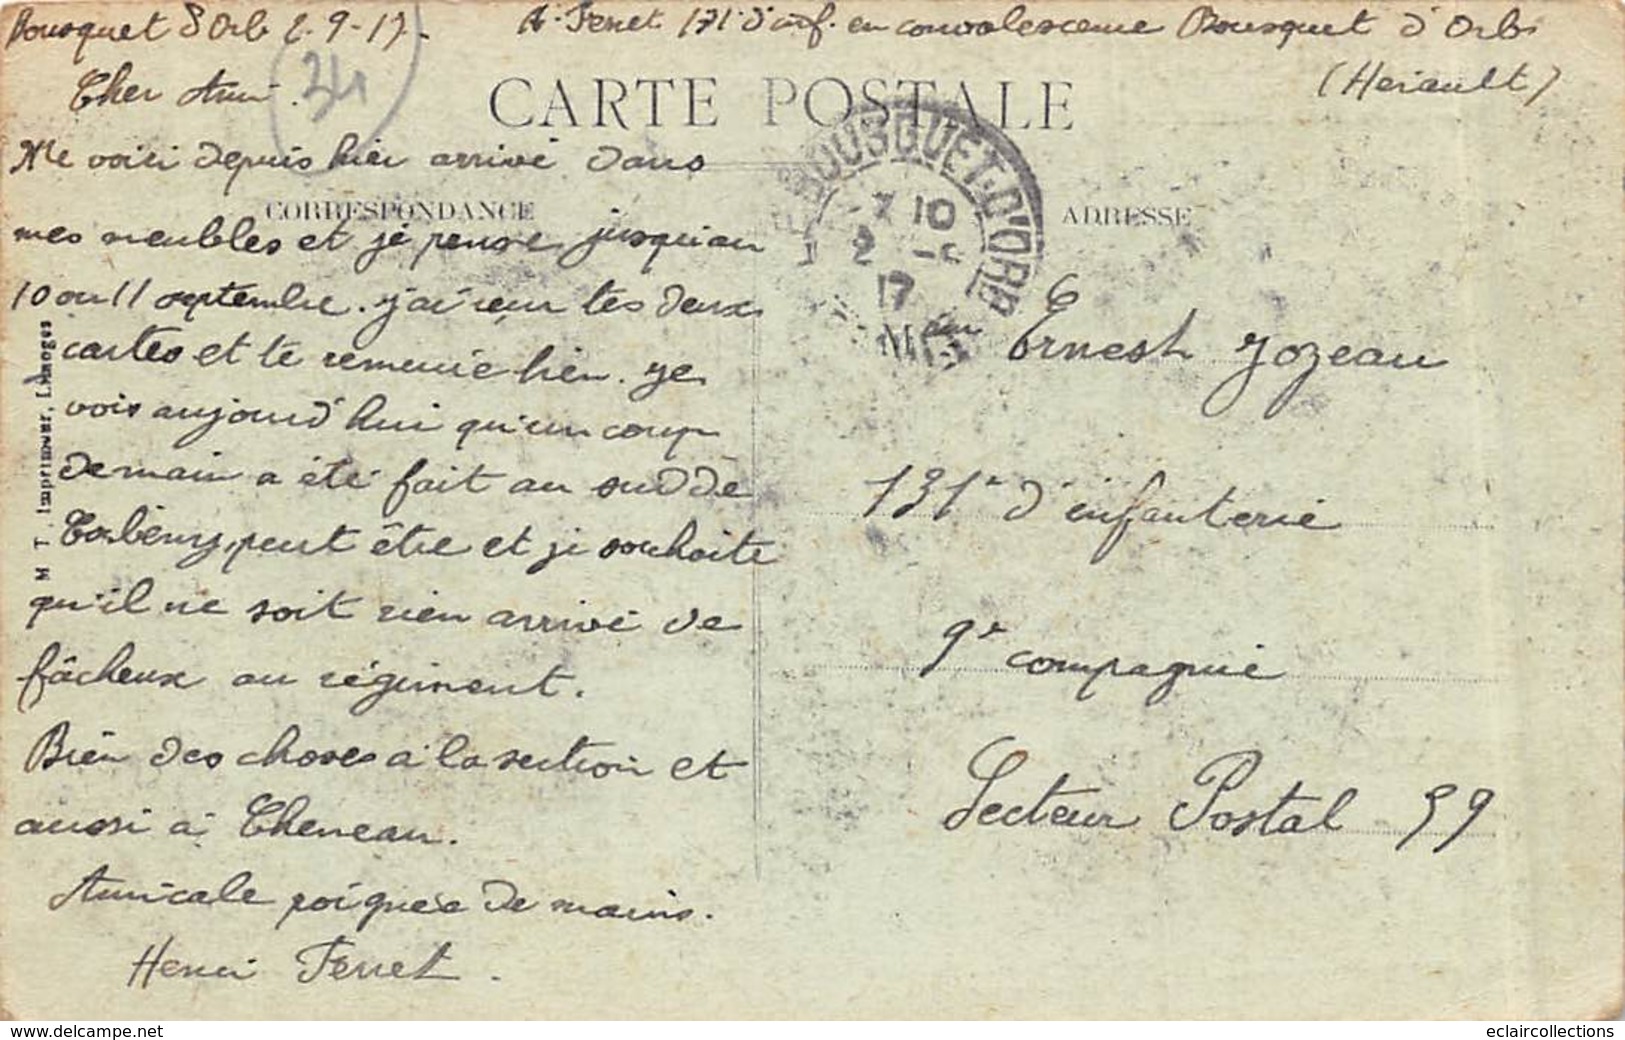 Bousquet d'Orb 2.9.17.
H. Ferret 131e d'inf. en convalescence Bousquet d'Orb
(Herault)
34
Cher Ami.
CARTE POSTALE
Me voici depuis hier arrivé dans
CORRESPONDANCE
ADRESSE
mes meubles et je pense jusqu'au
10 ou 11 septembre. j'ai reçu tes deux
cartes et te remercie bien. Je
vois aujourd'hui qu'un coup
de main a été fait au sud de
Corbeny, peut être et je souhaite
qu'il ne soit rien arrivé de
fâcheux au régiment.
Bien des choses à la section et
aussi à Cheneau.
Amicale poignée de mains.
Henri Ferret.
BOUSQUET-D'ORB
7 10
2 -9
17
M Ernest Jozeau
131e d'infanterie
9e compagnie
Secteur Postal 59
M T. Imprimeur, Limoges
www.delcampe.net
eclaircollections